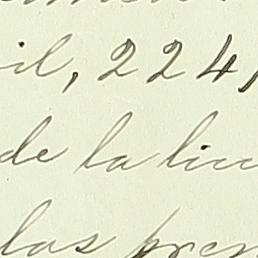 il, 224,
de la lic
las pren